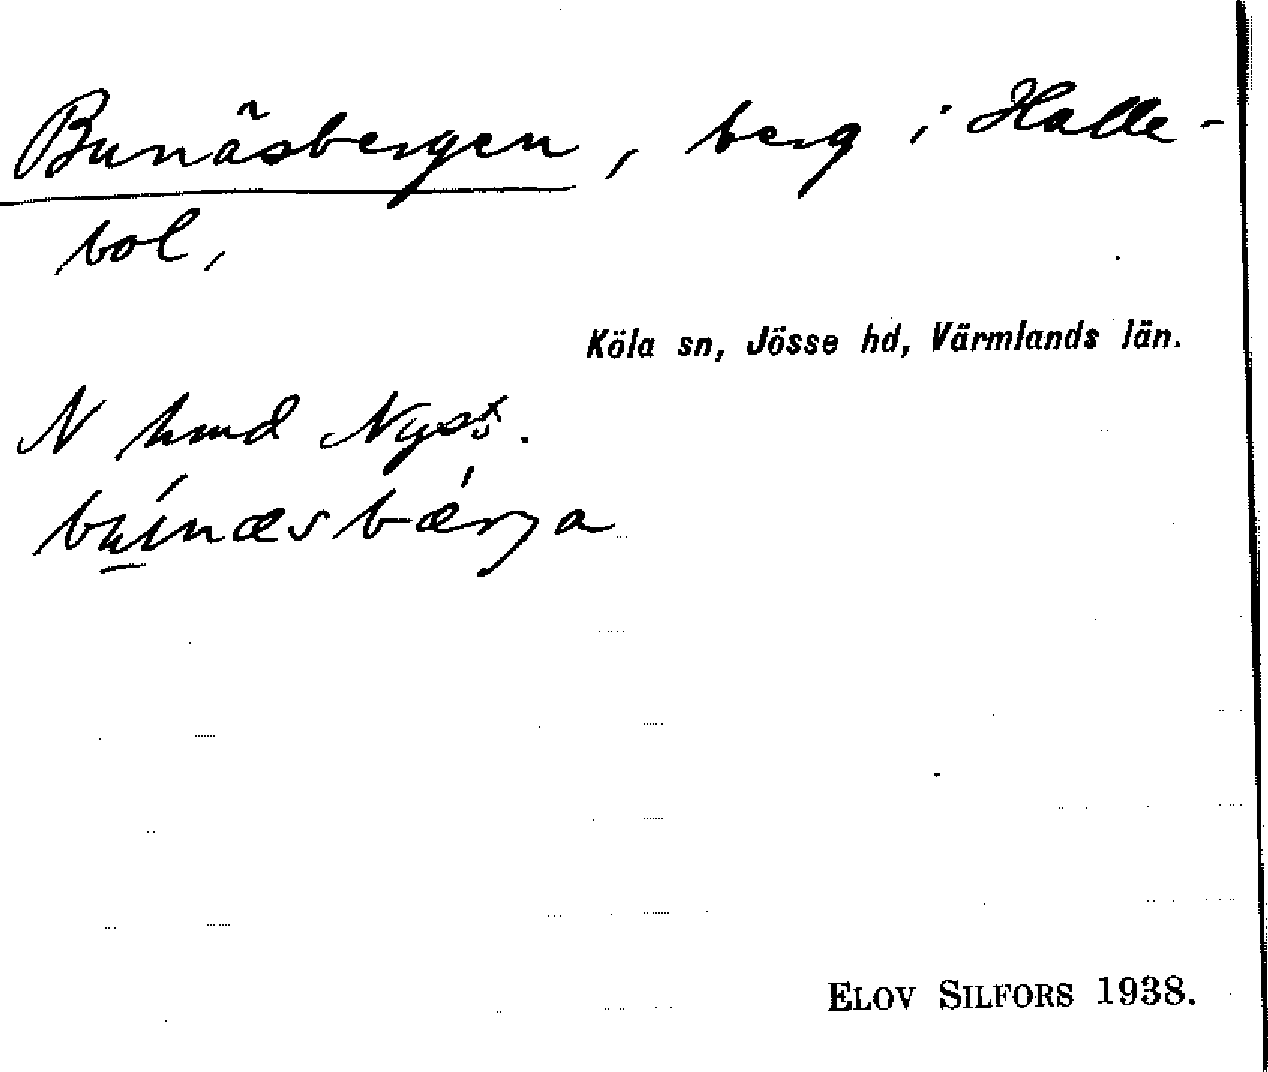 Bunäsbergen, berg i Halle-
bol,
Köla sn, Jösse hd, Värmlands län.
N hmd
bu̲´næsbær´ja
ELOV SILFORS 1938.